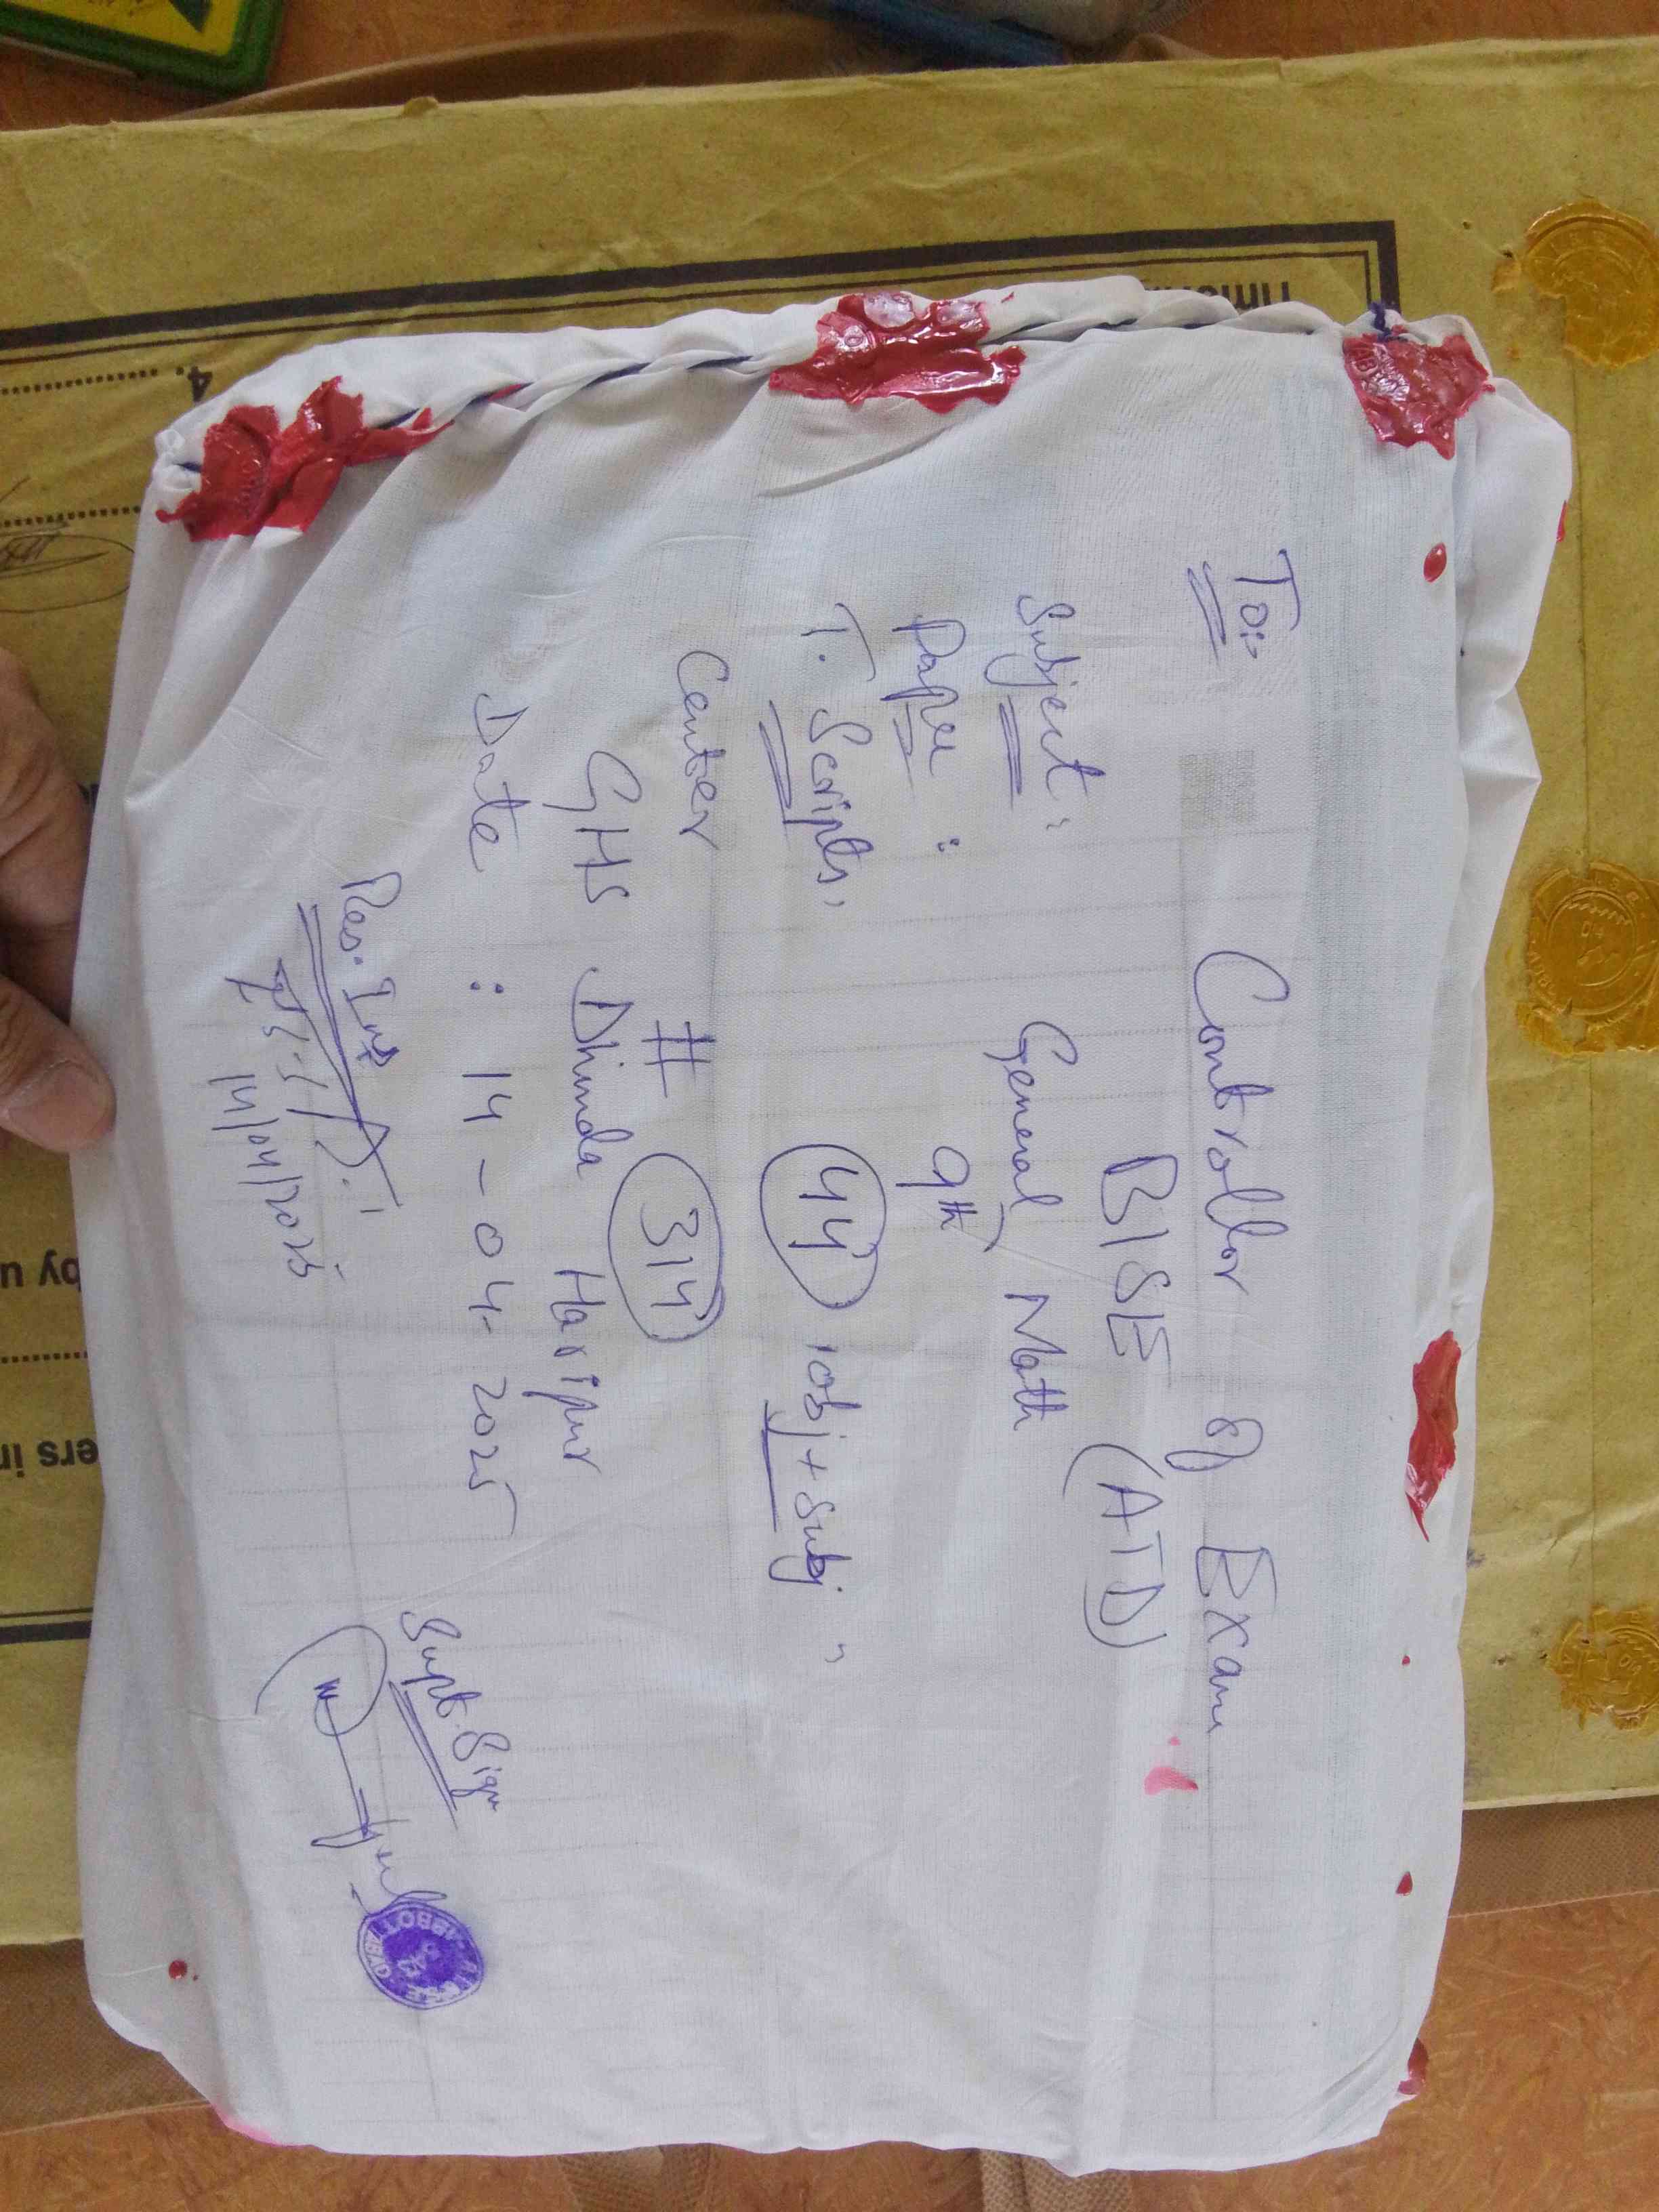 To:-
Controller of Exam
BISE (ATD)
Subject: General Math
Paper: 9th
T. Scripts, 44 (obj + Subj)
Center # 314
GHS Dhinda Haripur
Date : 14-04-2025
Res. Ins
14/04/2025
Supt. Sign
4.
by u
ers in